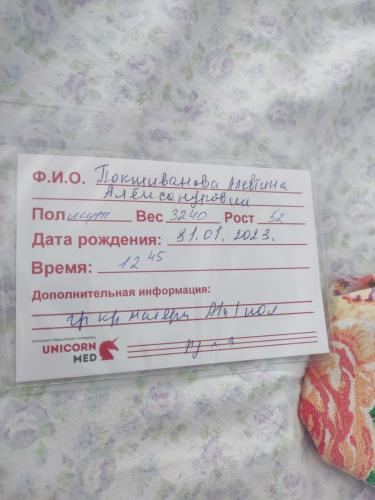 Ф.И.О. Покшиванова Алевтина
Александровна
Пол муж Вес 3240 Рост 52
Дата рождения: 31.01.2023.
Время: 12 45
Дополнительная информация:
гр кр матери A(II) пол
UNICORN
MED